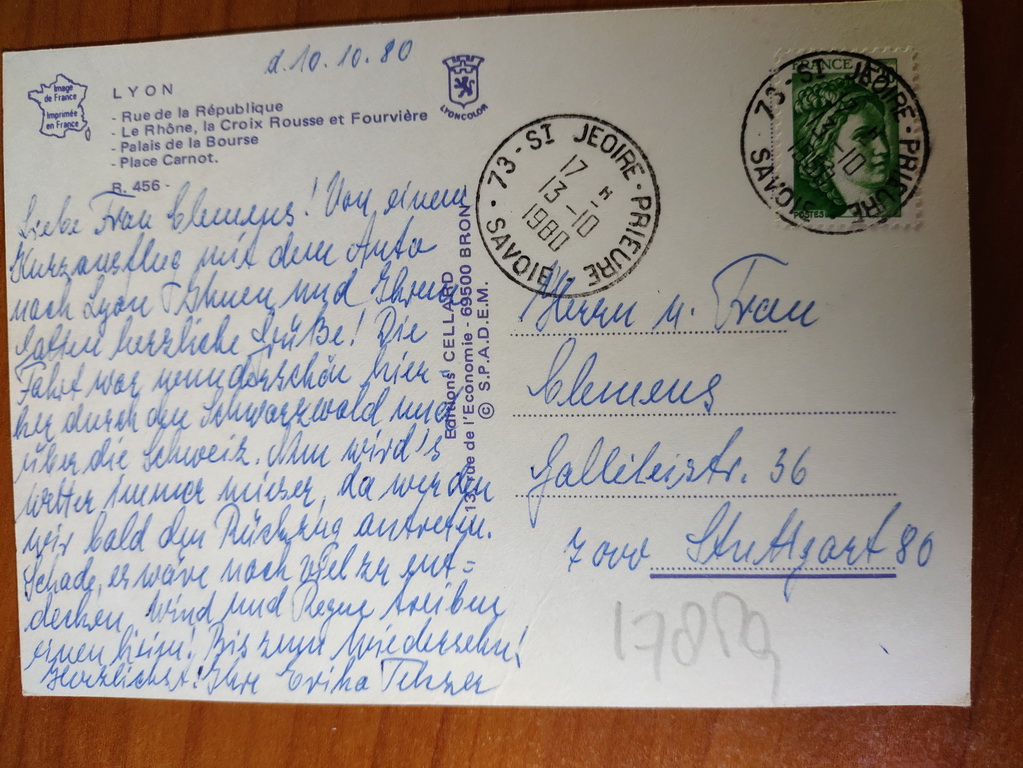 d. 10.10.80
Image
de France
Imprimée
en France
LYON
- Rue de la République
- Le Rhône, la Croix Rousse et Fourvière
- Palais de la Bourse
- Place Carnot.
R. 456 -
LYONCOLOR
Liebe Frau Clemens! Von einem
Kurzausflug mit dem Auto
nach Lyon Ihnen und Ihrem
Gatten herzliche Grüße! Die
Fahrt war wunderschön hier-
her durch den Schwarzwald und
über die Schweiz. Nun wird's
Wetter immer mieser, da werden
wir bald den Rückzug antreten.
Schade, es wäre noch viel zu ent=
decken. Wind und Regen treiben
einen heim! Bis zum Wiedersehn!
Herzlichst! Ihre Erika
Editions CELLARD
13, rue de l'Economie - 69500 BRON
© S.P.A.D.E.M.
73 - ST JEOIRE-PRIEURE - SAVOIE
17 H
13-10
1980
FRANCE
POSTES
73 - ST JEOIRE-PRIEURE
SAVOIE
Herrn u. Frau
Clemens
Gallileistr. 36
7000 Stuttgart 80